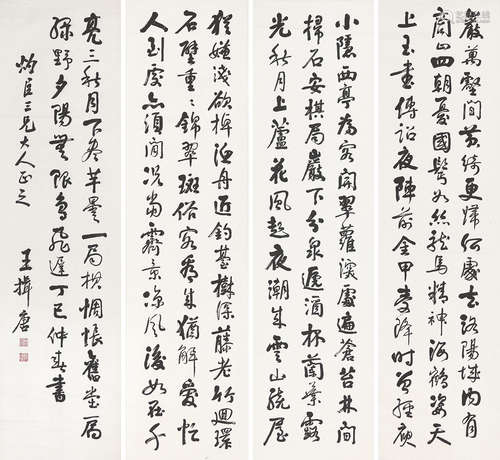 巖萬壑間黃綺更歸何處去洛陽城內有
商山四朝憂國鬢如絲龍馬精神海鶴姿天
上玉書傳詔夜陣前金甲受降時曾經庾
小隱西亭為客開翠蘿深處遍蒼苔林間
掃石安棋局巖下分泉遞酒杯蘭葉露
光秋月上蘆花風起夜潮來雲山繞屋
猶嫌淺欲棹漁舟近釣臺樹深藤老竹迴環
石壁重重錦翠斑俗客看來猶解愛忙
人到處亦須閒況當霽景涼風後如在千
亮三秋月下盡羊曇一局棋惆悵舊堂扃
綠野夕陽無限鳥飛遲丁巳仲春書
灼臣三兄大人正之
王揖唐